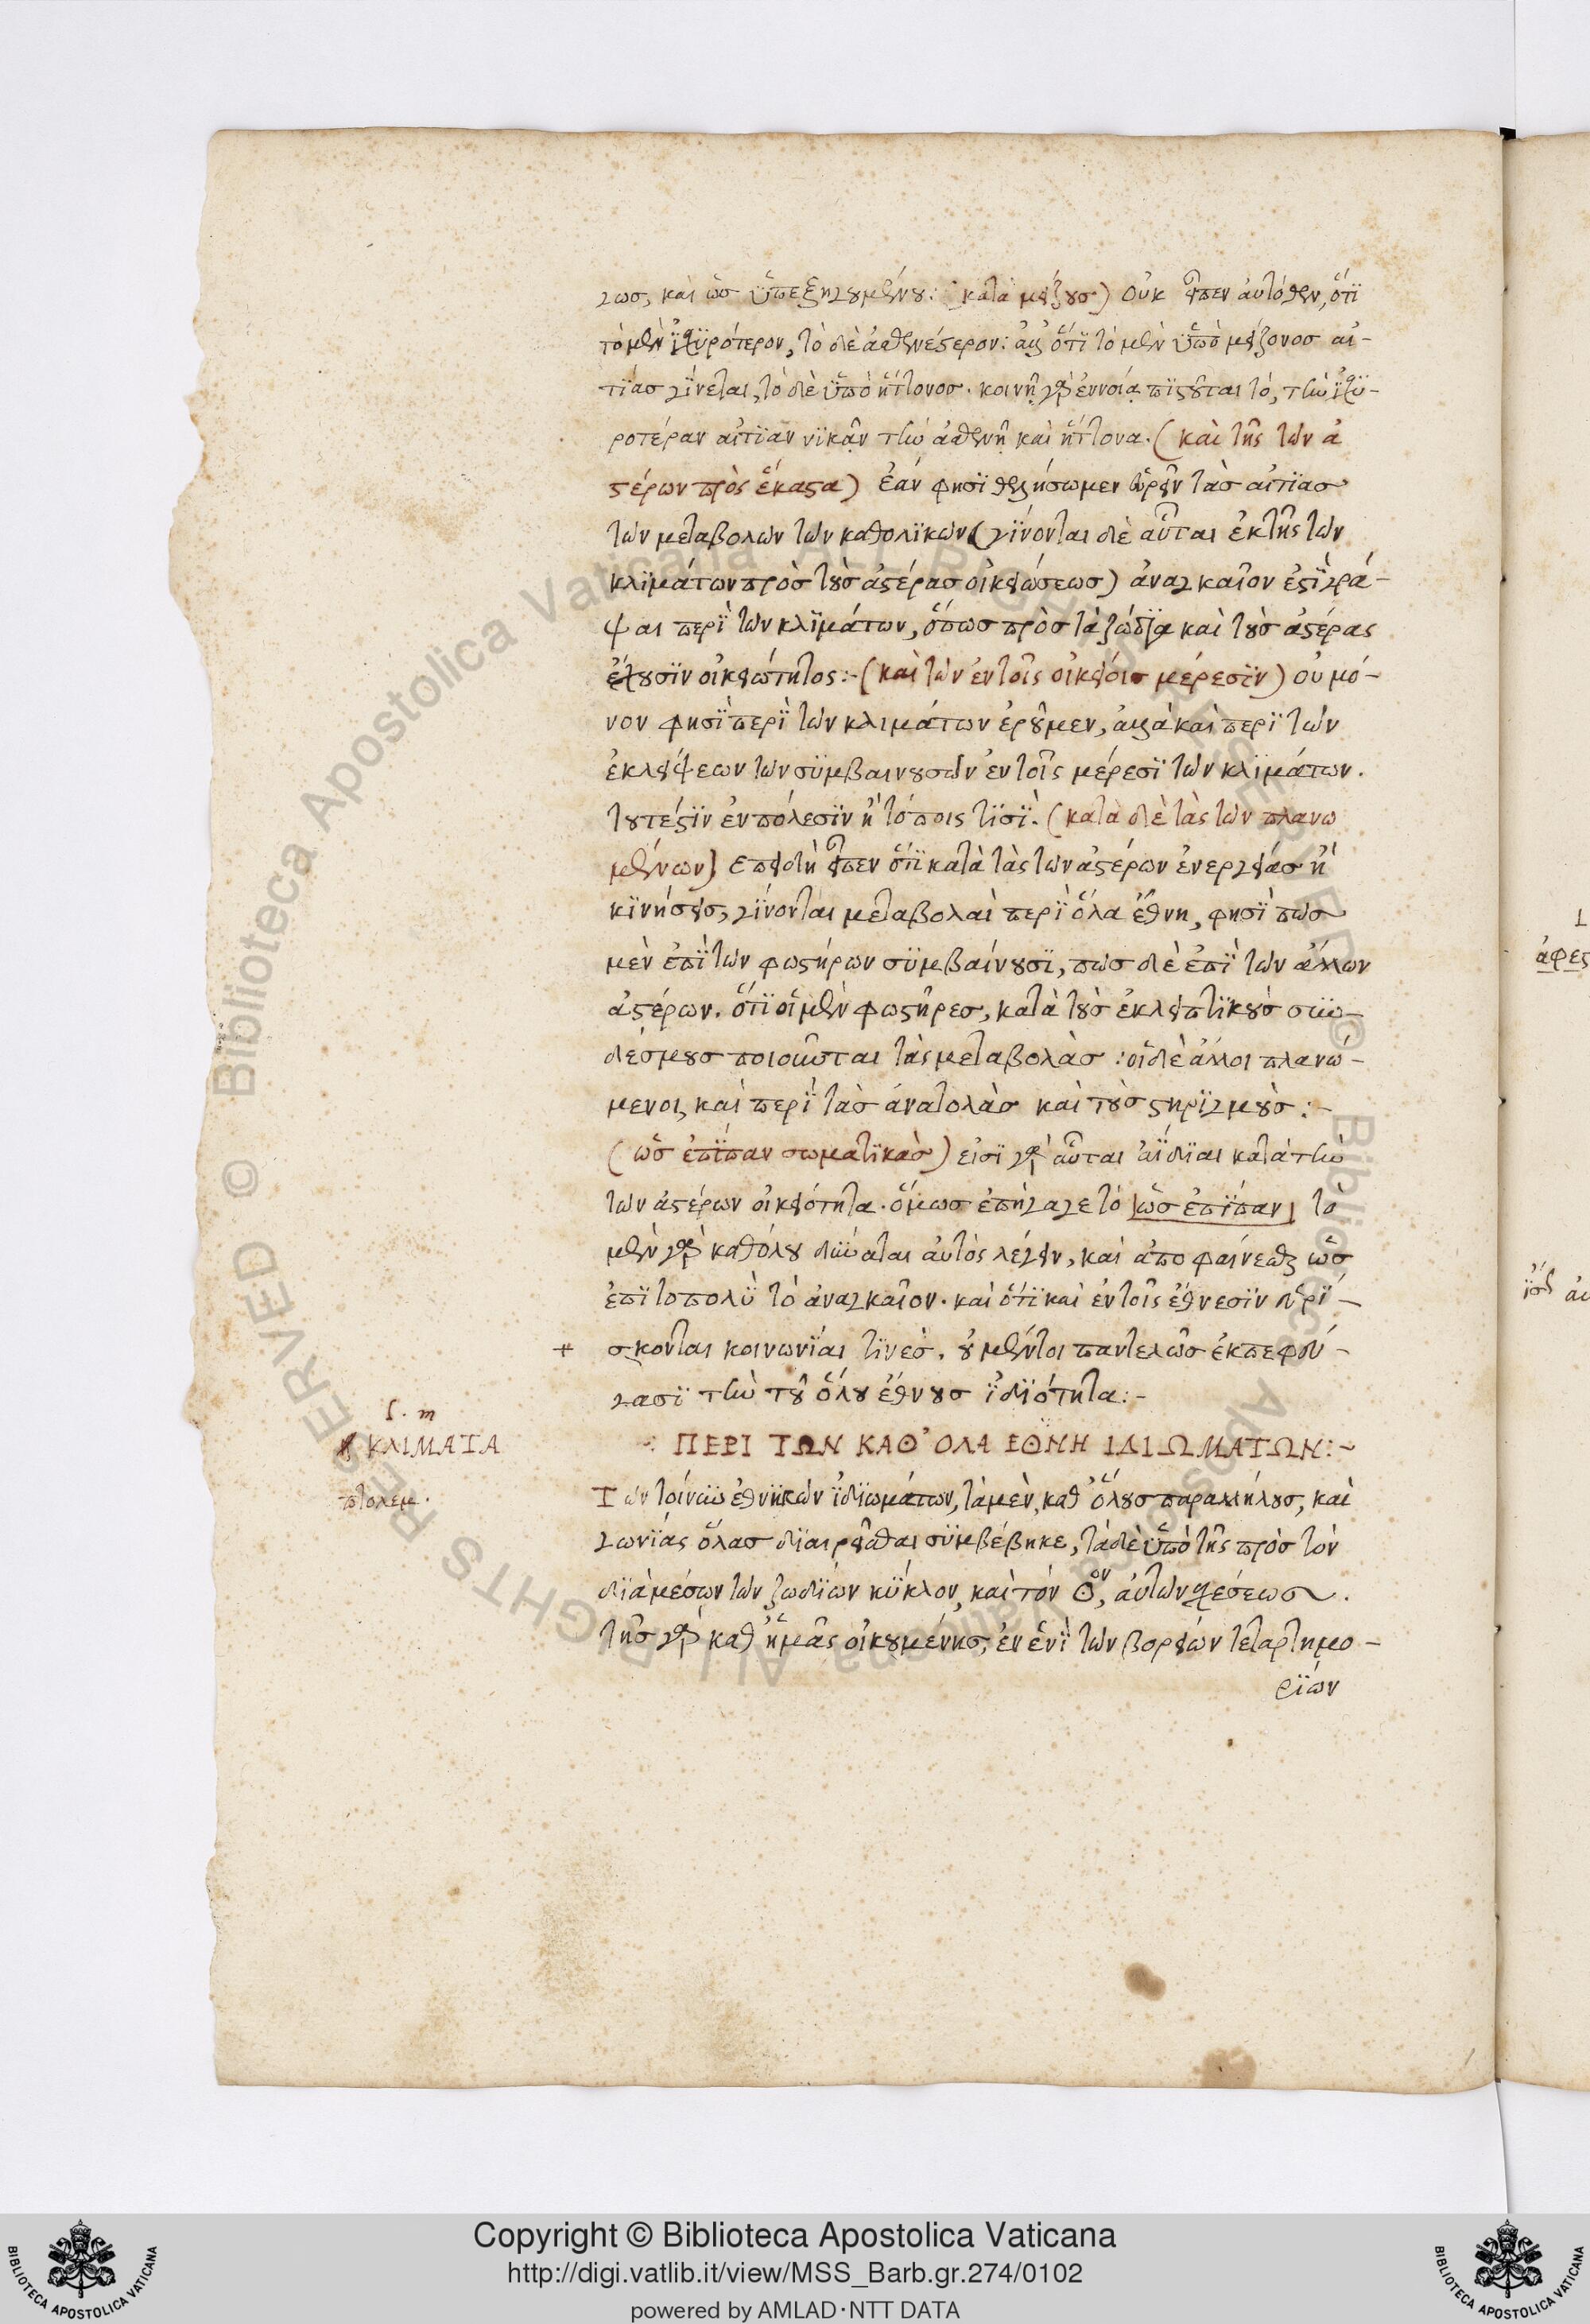 γως, καὶ ὡς ὑπεξηγουμένου: (κατὰ μείζους) οὐκ εἶπεν αὐτόθεν, ὅτι
τὸ μὲν ἰσχυρότερον, τὸ δὲ ἀσθενέστερον: ἀλλ' ὅτι τὸ μὲν ὑπὸ μείζονος αἰ-
τίας γίνεται, τὸ δὲ ὑπὸ ἥττονος. κοινῇ γὰρ ἐννοίᾳ πιστοῦται τό, τὴν ἰσχυ-
ροτέραν αἰτίαν νικᾶν τὴν ἀσθενῆ καὶ ἥττονα. (καὶ τῆς τῶν ἀ
στέρων πρὸς ἕκαστα) ἐάν φησι θελήσωμεν εὑρεῖν τὰς αἰτίας
τῶν μεταβολῶν τῶν καθολικῶν (γίνονται δὲ αὗται ἐκ τῆς τῶν
κλιμάτων πρὸς τοὺς ἀστέρας οἰκειώσεως) ἀναγκαῖον ἐστὶ γρά-
ψαι περὶ τῶν κλιμάτων, ὅπως πρὸς τὰ ζώδια καὶ τοὺς ἀστέρας
ἔχουσιν οἰκειότητος:- (καὶ τῶν ἐν τοῖς οἰκείοις μέρεσιν) οὐ μό-
νον φησὶ περὶ τῶν κλιμάτων ἐροῦμεν, ἀλλὰ καὶ περὶ τῶν
ἐκλείψεων τῶν συμβαινουσῶν ἐν τοῖς μέρεσι τῶν κλιμάτων.
τουτέστιν ἐν πόλεσιν ἢ τόποις τισί. (κατὰ δὲ τὰς τῶν πλανω
μένων) ἐπειδὴ εἶπεν ὅτι κατὰ τὰς τῶν ἀστέρων ἐνεργείας ἢ
κινήσεις, γίνονται μεταβολαὶ περὶ ὅλα ἔθνη, φησὶ πῶς
μὲν ἐπὶ τῶν φωστήρων συμβαίνουσι, πῶς δὲ ἐπὶ τῶν ἄλλων
ἀστέρων. ὅτι οἱ μὲν φωστῆρες, κατὰ τοὺς ἐκλειπτικοὺς συν-
δέσμους ποιοῦνται τὰς μεταβολάς: οἱ δὲ ἄλλοι πλανώ-
μενοι, καὶ περὶ τὰς ἀνατολὰς καὶ τοὺς στηριγμούς:-
(ὡς ἐπίπαν σωματικὰς) εἰσὶ γὰρ αὗται ἀΐδιαι κατὰ τὴν
τῶν ἀστέρων οἰκειότητα. ὅμως ἐπήγαγε τὸ |ὡς ἐπίπαν| τὸ
μὲν γὰρ καθόλου δύναται αὐτὸς λέγειν, καὶ ἀποφαίνεσθαι ὡς
ἐπὶ τὸ πολὺ τὸ ἀναγκαῖον. καὶ ὅτι καὶ ἐν τοῖς ἔθνεσιν εὑρί-
+ σκονται κοινωνίαι τινές. οὐ μέντοι παντελῶς ἐκπεφεύ-
γασι τὴν τοῦ ὅλου ἔθνους ἰδιότητα:-
ΚΛΙΜΑΤΑ
πτολεμ.
ΠΕΡΙ ΤΩΝ ΚΑΘ' ΟΛΑ ΕΘΝΗ ΙΔΙΩΜΑΤΩΝ:~
Τῶν τοίνυν ἐθνικῶν ἰδιωμάτων, τὰ μὲν, καθ' ὅλους παραλλήλους, καὶ
γωνίας ὅλας διαιρεῖσθαι συμβέβηκε, τὰ δὲ ὑπὸ τῆς πρὸς τὸν
διὰ μέσων τῶν ζωδίων κύκλον, καὶ τὸν ☉ον, αὐτῶν σχέσεως.
τῆς γὰρ καθ' ἡμᾶς οἰκουμένης, ἐν ἑνὶ τῶν βορείων τεταρτημο-
ρίων
ἀφες
Copyright © Biblioteca Apostolica Vaticana
http://digi.vatlib.it/view/MSS_Barb.gr.274/0102
powered by AMLAD·NTT DATA
BIBLIOTECA APOSTOLICA VATICANA
BIBLIOTECA APOSTOLICA VATICANA